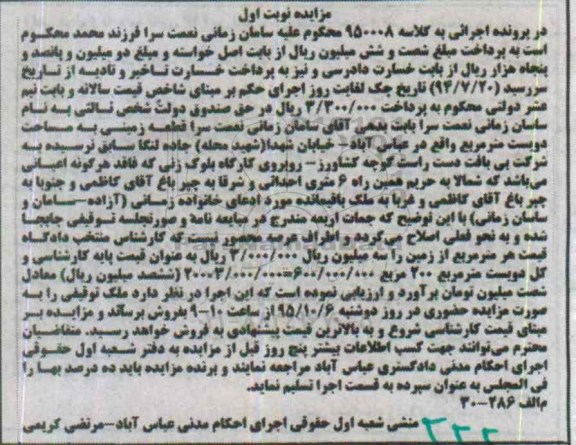 مزایده نوبت اول
در پرونده اجرائی به کلاسه ۹۵۰۰۰۸ محکوم علیه سامان زمانی نعمت سرا فرزند محمد محکوم
است به پرداخت مبلغ شصت و شش میلیون ریال از بابت اصل خواسته و مبلغ دو میلیون و پانصد و
پنجاه هزار ریال از بابت خسارت دادرسی و نیز به پرداخت خسارت تاخیر و تادیه از تاریخ
سررسید (۹۴/۷/۲۰) تاریخ چک لغایت روز اجرای حکم بر مبنای شاخص قیمت سالانه و بابت نیم
عشر دولتی محکوم به پرداخت ۳/۳۰۰/۰۰۰ ریال در حق صندوق دولت شخص ثالثی به نام
ساسان زمانی نعمت سرا بابت بدهی آقای سامان زمانی نعمت سرا قطعه زمینی به مساحت
دویست مترمربع واقع در عباس آباد- خیابان شهدا(شهید محله) جاده لنگا سابق نرسیده به
شرکت پی بافت دست راست کوچه کشاورز- روبروی کارگاه بلوک زنی که فاقد هرگونه اعیانی
می‌باشد که شمالا به حریم همین راه ۶ متری احداثی و شرقا به چپر باغ آقای کاظمی و جنوبا به
چپر باغ آقای کاظمی و غربا به ملک باقیمانده مورد ادعای خانواده زمانی (آزاده-سامان و
ساسان زمانی) با این توضیح که جهات اربعه مندرج در مبایعه نامه و صورتجلسه توقیفی جابجا
شده و به نحو فعلی اصلاح می‌گردد و اطراف عرصه محصور نیست که کارشناس منتخب دادگاه
قیمت هر مترمربع از زمین را سه میلیون ریال ۳/۰۰۰/۰۰۰ ریال به عنوان قیمت پایه کارشناسی و
کل دویست مترمربع ۲۰۰ مربع ۶۰۰/۰۰۰/۰۰۰=۳/۰۰۰/۰۰۰×۲۰۰ (ششصد میلیون ریال) معادل
شصت میلیون تومان برآورد و ارزیابی نموده است که این اجرا در نظر دارد ملک توقیفی را به
صورت مزایده حضوری در روز دوشنبه ۹۵/۱۰/۶ از ساعت ۱۰-۹ بفروش برساند و مزایده بر
مبنای قیمت کارشناسی شروع و به بالاترین قیمت پیشنهادی به فروش خواهد رسید. متقاضیان
محترم می‌توانند جهت کسب اطلاعات بیشتر پنج روز قبل از مزایده به دفتر شعبه اول حقوقی
اجرای احکام مدنی دادگستری عباس آباد مراجعه نمایند و برنده مزایده باید ده درصد بها را
فی المجلس به عنوان سپرده به قسمت اجرا تسلیم نماید.
م‌الف ۲۸۶-۳۰
منشی شعبه اول حقوقی اجرای احکام مدنی عباس آباد-مرتضی کریمی